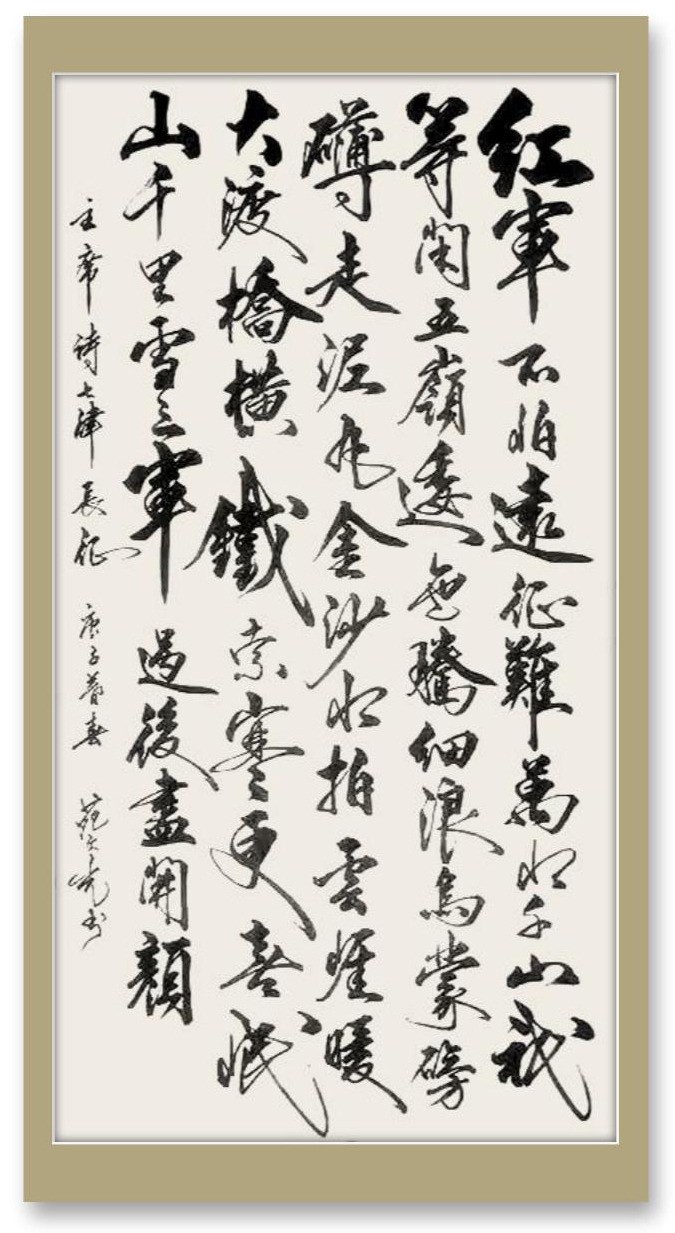 紅軍不怕遠征難萬水千山祇
等閑五嶺逶迤騰細浪烏蒙磅
礴走泥丸金沙水拍雲崖暖
大渡橋橫鐵索寒更喜岷
山千里雪三軍過後盡開顏
主席诗七律長征 庚子暮春 书